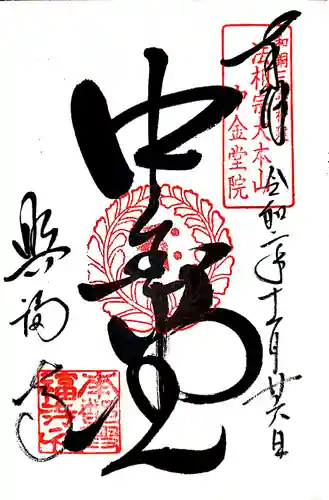 奉拝
令和二年十一月廿六日
中金堂
興福寺
法相宗大本山
中金堂院